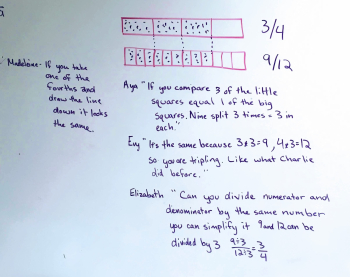 3/4
9/12
Madeleine- If you take
one of the
fourths and
draw the line
down it looks
the same.
Aya "If you compare 3 of the little
squares equal 1 of the big
squares. Nine split 3 times = 3 in
each."
"It's the same because 3x3=9, 4x3=12
So you are tripling. Like what Charlie
did before."
Elizabeth "Can you divide numerator and
denominator by the same number
you can simplify it 9 and 12 can be
divided by 3 9÷3/12÷3 = 3/4